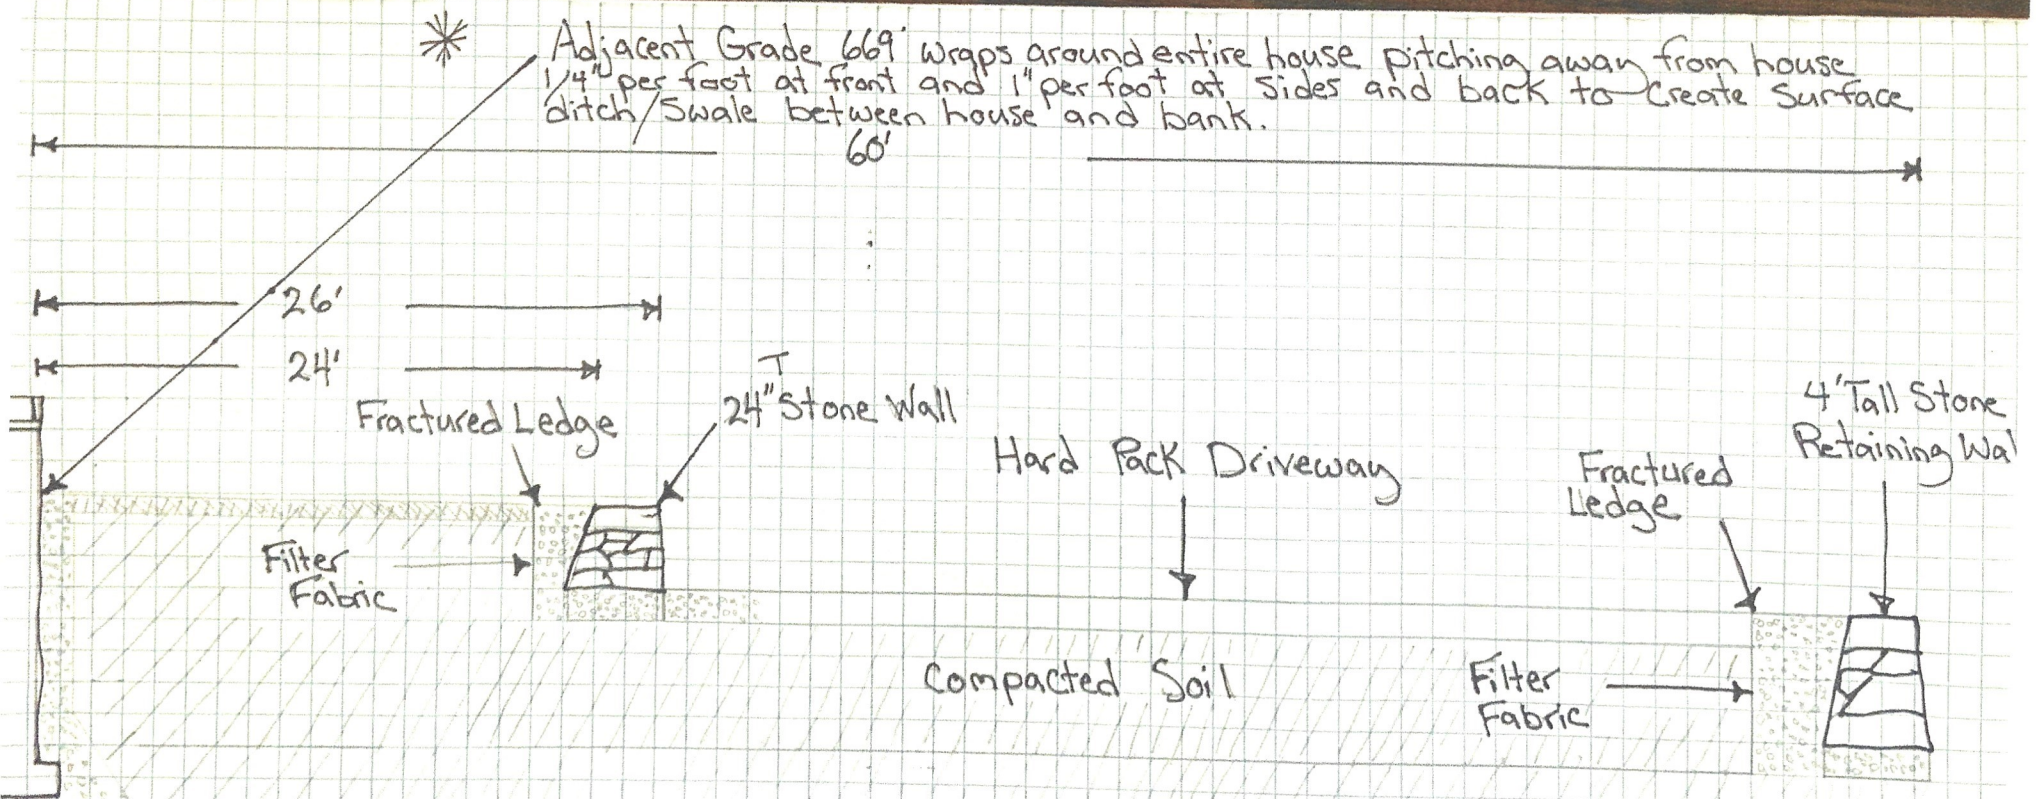 Adjacent Grade 669' wraps around entire house pitching away from house
1/4" per foot at front and 1" per foot at sides and back to create surface
ditch/swale between house and bank.
60'
26'
24'
Fractured Ledge
T
24" Stone Wall
Hard Pack Driveway
4' Tall Stone
Retaining Wal
Fractured
Ledge
Filter
Fabric
Compacted Soil
Filter
Fabric